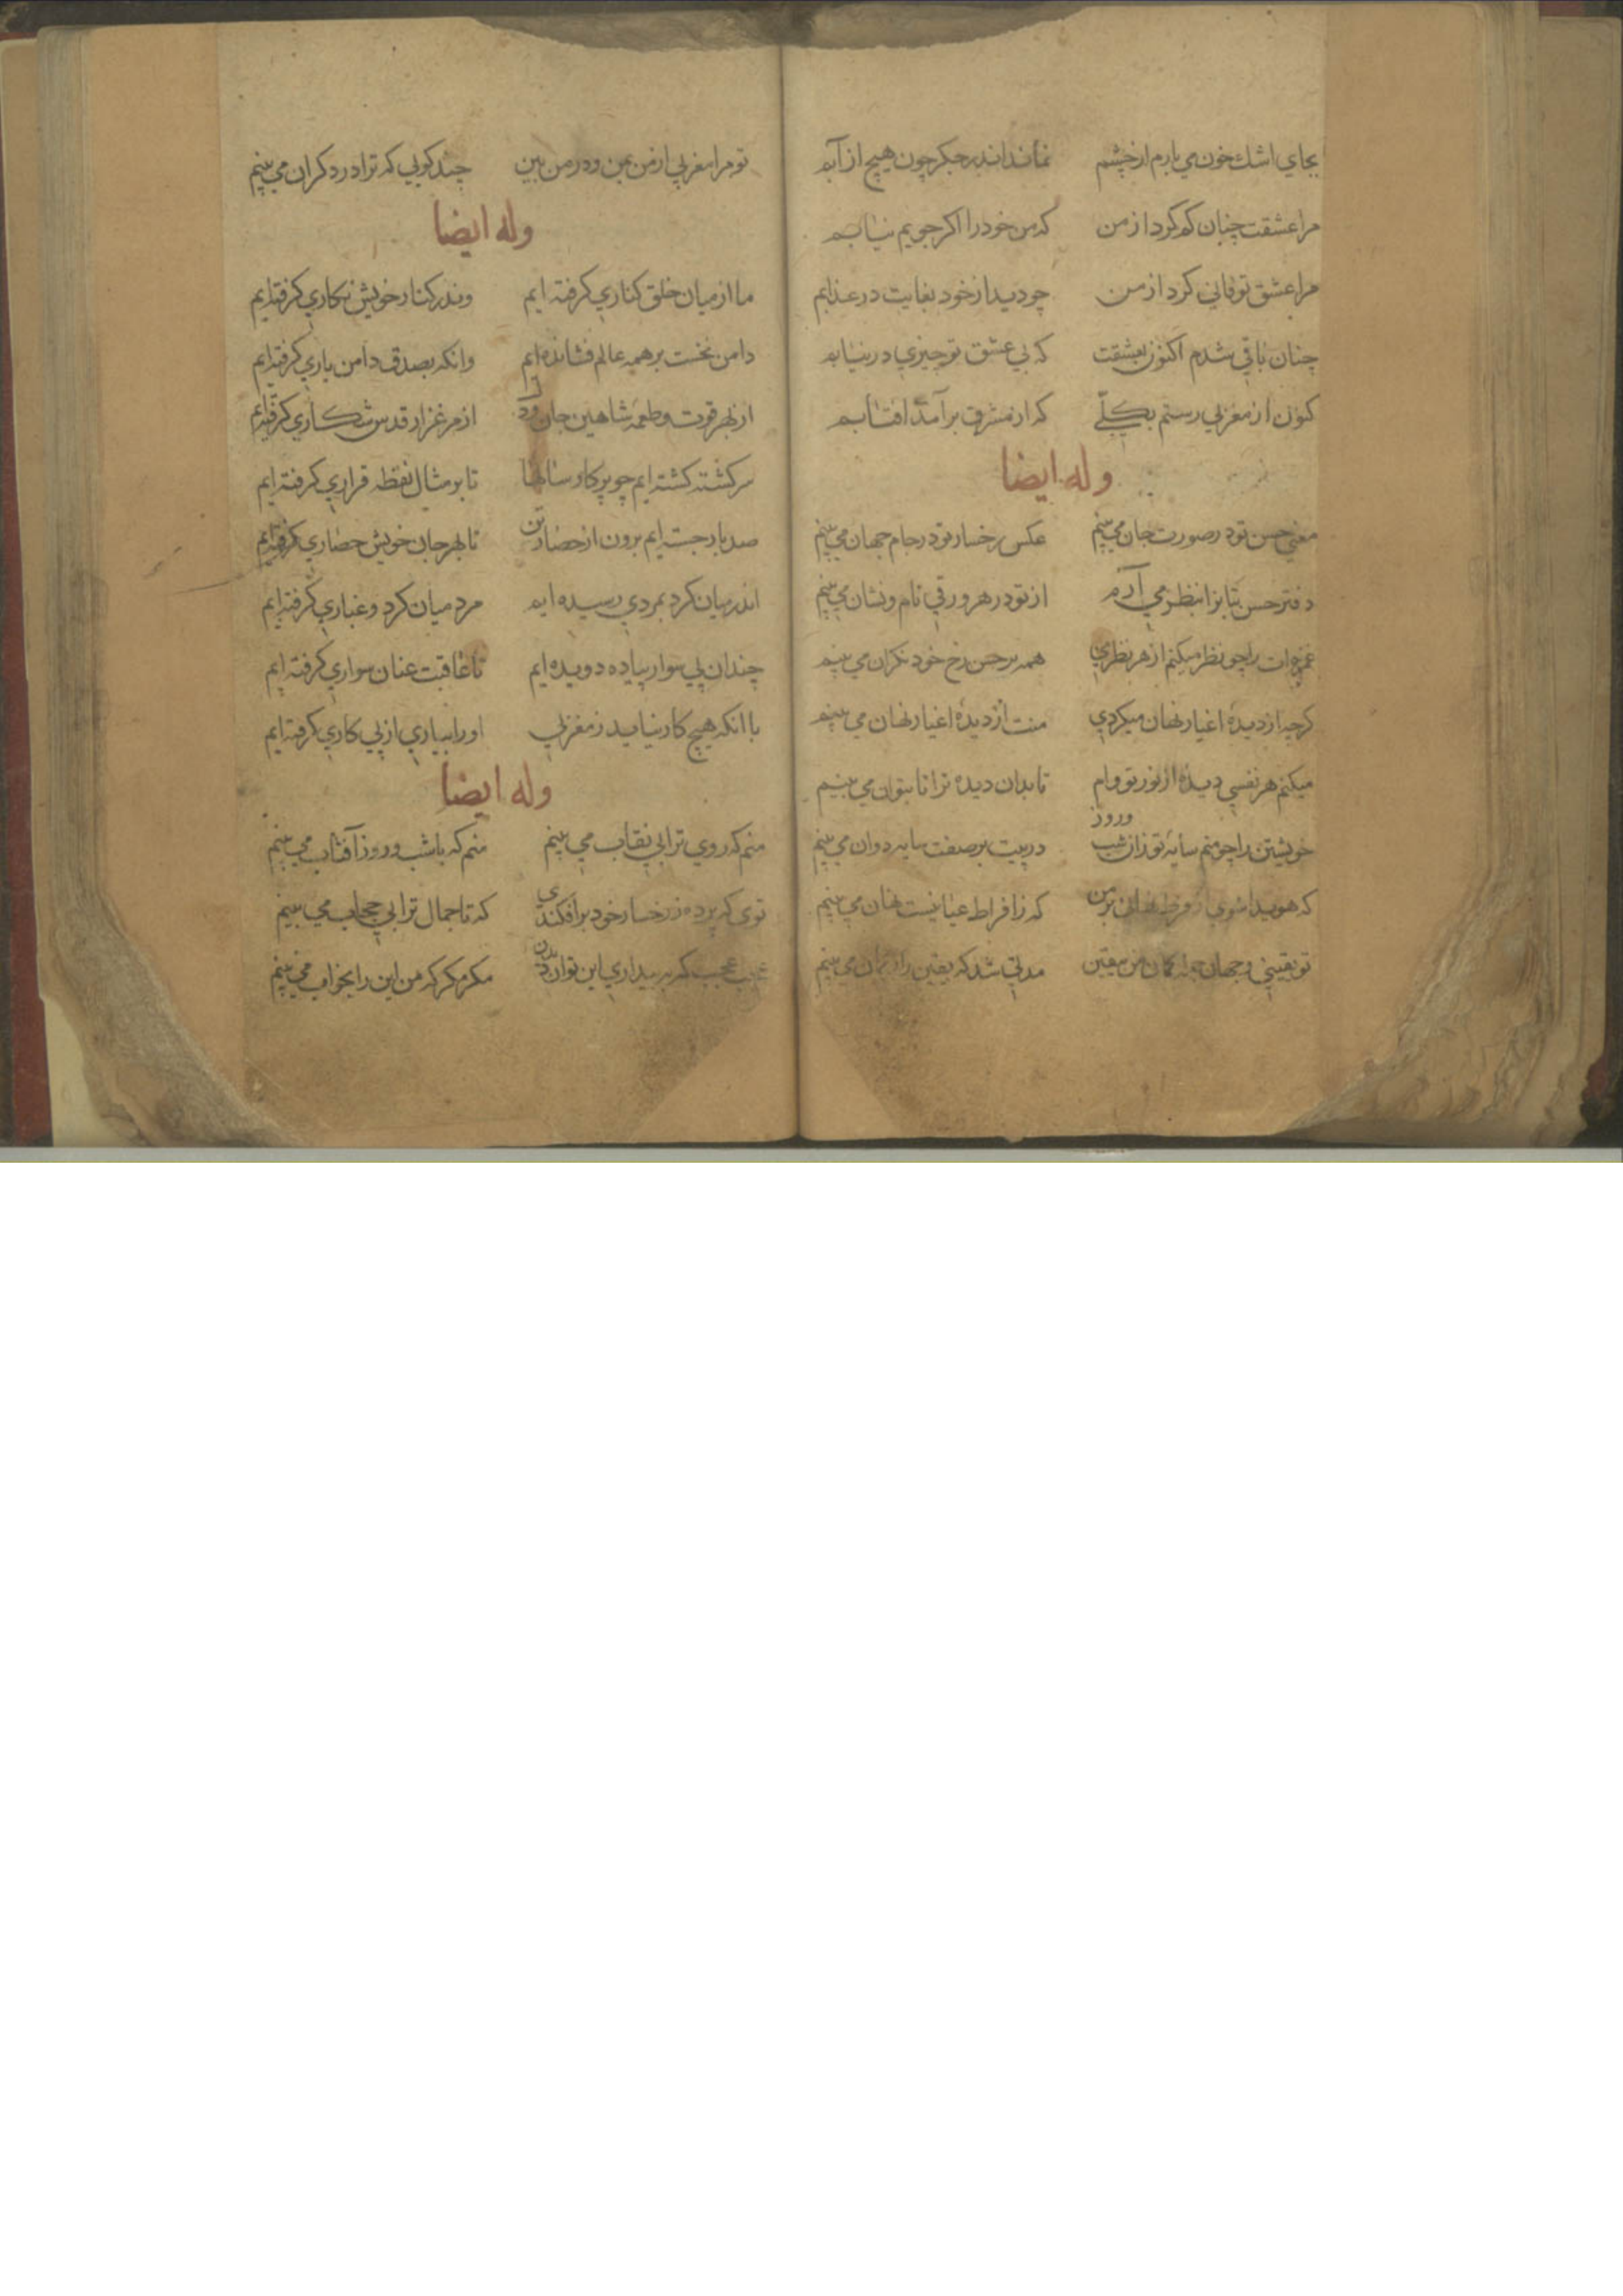 بجاي اشك خون مي بارم از چشم نماند اندر جكر چون هيچ از آبم
مرا عشقت چنان كم كرد از من كه من خود را اكر جويم نيابم
مرا عشق تو فاني كرد از من چو ديد از خود بغايت در عذابم
چنان باقي شدم اكنون بعشقت كه بي عشق تو چيزي در نيابم
كنون از مغربي رستم بكلّي كه از مشرق برآمد آفتابم
وله ايضا
معني حسن تو در صورت جان مي بينم عكس رخسار تو در جام جهان مي بينم
دفتر حسن بتانرا بنظر مي آرم از تو در هر ورقي نام و نشان مي بينم
را چو نظر ميكنم از هر نظري همه بر حسن رخ خود نكران مي بينم
كرچه از ديدهٔ اغيار نهان ميكردي منت از ديدهٔ اغيار نهان مي بينم
ميكنم هر نفسي ديدهٔ از نور تو وام تا بدان ديده ترا تا بتوان مي بينم
خويشتن را چو منم سايهٔ تو زان شب وروز در پيت بر صفت سايه دوان مي بينم
كه هويدا شوي از فرط نهاني بر من كه ز افراط عيانيت نهان مي بينم
تو يقيني وجهان جمله كمان من بيقين مدتي شد كه يقين را ز كمان مي بينم
تو مرا مغربي از من بمن ودر من بين چند كويي كه ترا در دكران مي بينم
وله ايضا
ما از ميان خلق كناري كرفته ايم وندر كنار خويش نكاري كرفته ايم
دامن نخست بر همه عالم فشانده ايم وانكه بصدق دامن ياري كرفته ايم
از بهر قوت وطعمهٔ شاهين جان خود از مرغزار قدس شكاري كرفته ايم
سركشته كشته ايم چو پركار سالها تا بر مثال نقطه قراري كرفته ايم
صد بار جسته ايم برون از حصار تن تا بهر جان خويش حصاري كرفته ايم
اندر ميان كرد بمردي رسيده ايم مرد ميان كرد وغباري كرفته ايم
چندان پي سوار پياده دويده ايم تا عاقبت عنان سواري كرفته ايم
با انكه هيچ كار نيايد ز مغربي او را بياري از پي كاري كرفته ايم
وله ايضا
منم كه روي ترا بي نقاب مي بينم منم كه با شب وروز آفتاب مي بينم
توى كه پرده ز رخسار خود برافكندى كه تا جمال ترا بي حجاب مي بينم
عجب كه به بيداري اين توان ديدن مكر مكر كه من اين را بخواب مي بينم